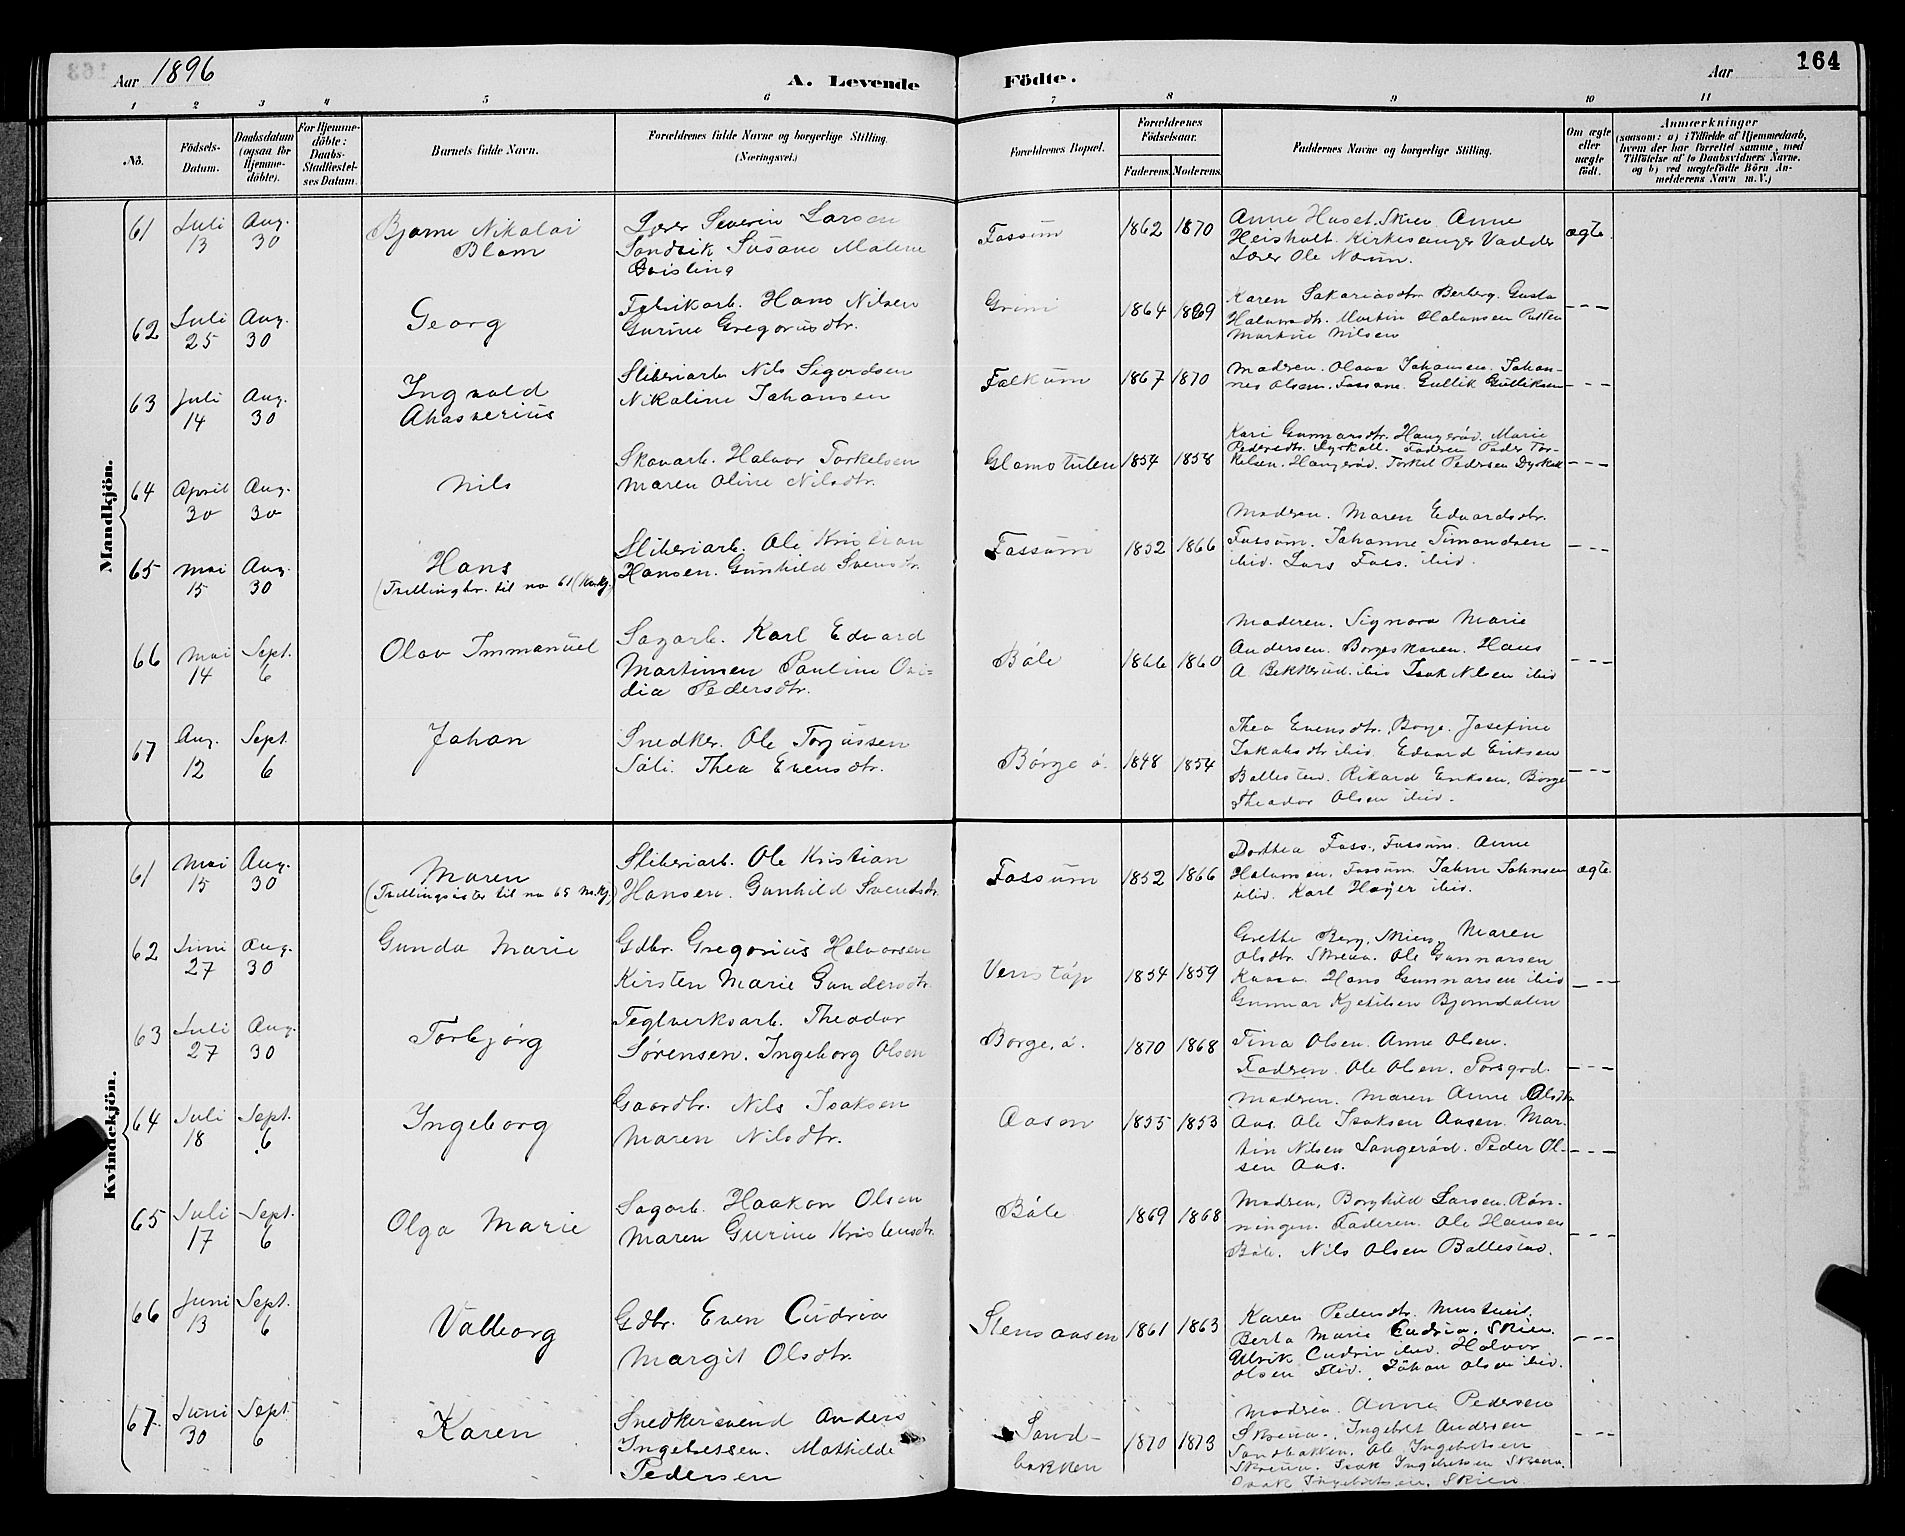 Aar 1896
A. Levende Födte.
Aar
164
1 2 3 4 5 6 7 8 9 10 11
No.
Födsels-
Datum.
Daabsdatum
(ogsaa for
Hjemme-
döbte).
For Hjemme-
döbte:
Daabs-
Stadfæstel-
ses Datum.
Barnets fulde Navn.
Forældrenes fulde Navne og borgerlige Stilling.
(Næringsvei.)
Forældrenes Bopæl.
Forældrenes
Födselsaar.
Faderens Moderens
Faddernes Navne og borgerlige Stilling.
Om ægte
eller
uægte
födt.
Anmærkninger
(saasom: a) i Tilfælde af Hjemmedaab,
hvem der har forrettet samme, med
Tilföielse af to Daabsvidners Navne,
og b) ved uægtefödte Börn An-
melderens Navn m. V.)
Mandkjön.
61 Juli 13 Aug. 30
Bjarne Nikolai
Blom
Lærer Severin Larsen
Sandvik Susane Malene
Qvisling
Fossum 1862 1870
Anne Huset. Skien Anne
Heisholt. Kirkesanger Vadder
Lærer Ole Næun.
ægte
62 Juli 25 Aug. 30
Georg
Fabrikarb. Hans Nilsen
Gurine Gregoriusdtr.
Grini 1864 1869
Karen Sakariasdtr. Berberg. Gusta
Halvorsdtr. Martin
Martin Nilsen
- - -
63 Juli 14 Aug. 30
Ingvald
Ahasverius
Sliberiarb. Nils Sigurdsen
Nikoline Johansen
Falkum 1867 1870
Modren. Olava Johansen. Johan-
nes Olsen. Fossum. Gullik Gulliksen
- - -
64 April 30 Aug. 30
Nils
Skovarb. Halvor Torkelsen
Maren Oline Nilsdtr.
Glamotulen 1854 1858
Kari Gunnarsdtr. Haugerød. Marie
Pedersdtr. Faderen Peder Tor-
kelsen. Haugerød. Torkel Pedersen
- - -
65 Mai 15 Aug. 30
Hans
(Trillingbr. til no 61 (Kv.kj.)
Sliberiarb. Ole Kristian
Hansen. Gunhild Svensdtr.
Fossum 1852 1866
Modren. Maren Edvardsdtr.
Fossum. Johanne Simondsen
ibid. Lars Foss. ibid.
- - -
66 Mai 14 Sept. 6
Olav Immanuel
Sagarb. Karl Edvard
Martinsen Pauline Ovi-
dia Pedersdtr.
Bøle 1866 1860
Moderen. Signora Marie
Andersen. Borgeskoven. Hans
A. Bekkerud. ibid Isak Nilsen ibid
- - -
67 Aug. 12 Sept. 6
Johan
Snedker. Ole Torjussen
Søli. Thea Evensdtr.
Børge ø. 1848 1854
Thea Evensdtr. Borge. Josefine
Jakobsdtr. ibid. Edvard Eriksen
Ballestad. Rikard Eriksen. Børge
Theodor Olsen ibid.
- - -
Kvindekjön.
61 Mai 15 Aug. 30
Maren
(Trillingsøster til no 65 M.kj.)
Sliberiarb. Ole Kristian
Hansen. Gunhild Svendsdtr.
Fossum 1852 1866
Dorthea Foss., Fossum. Anne
Halvorsen, Fossum. Johnsen
ibid. Karl Høyer ibid.
ægte
62 Juni 27 Aug. 30
Gunda Marie
Gdbr. Gregorius Halvorsen
Kirsten Marie Gundersdtr.
Venstøp 1854 1859
Grethe Berg, Skien, Maren
Olsdtr. Skreua. Ole Gunnarsen
Kaasa. Hans Gunnarsen ibid
Gunnar Kjetilsen Bjorndalen
- - -
63 Juli 27 Aug. 30
Torbjørg
Teglverksarb. Theodor
Sørensen. Ingeborg Olsen
Borge, ø. 1870 1868
Tina Olsen. Anne Olsen.
Fadren. Ole Olsen. Porsgrd.
- - -
64 Juli 18 Sept. 6
Ingeborg
Gaardbr. Nils Isaksen
Maren Nilsdtr.
Aasen 1855 1853
Modren. Maren Anne Olsdtr.
Aas. Ole Isaksen Aasen. Mar-
tin Nilsen Langerød. Peder Ol-
sen Aas.
- - -
65 Juli 17 Sept. 6
Olga Marie
Sagarb. Haakon Olsen
Maren Gurine Kristensdtr.
Bøle 1869 1868
Modren, Borghild Larsen. Røn-
ningen. Faderen. Ole Hansen
Bøle. Nils Olsen Ballestad.
- - -
66 Juni 13 Sept. 6
Valborg
Gdbr. Even Cudrio
Margit Olsdtr.
Stensaasen 1861 1863
Karen Pedersdtr.
Berta Marie Cudrio. Skien.
Ulrik Cudrio ibid. Halvor
Olsen ibid. Johan Olsen ibid.
- - -
67 Juni 30 Sept 6
Karen
Snedkersvend Anders
Ingebretsen. Mathilde
Pedersen
Sand-
bakken 1870 1873
Modren. Anne Pedersen
Skreua. Ingebret Andersen
Sandbakken. Ole Ingebretsen
Skreua. Isak Ingebretsen Skreua.
Isaak Ingebretsen, Skien.
- - -